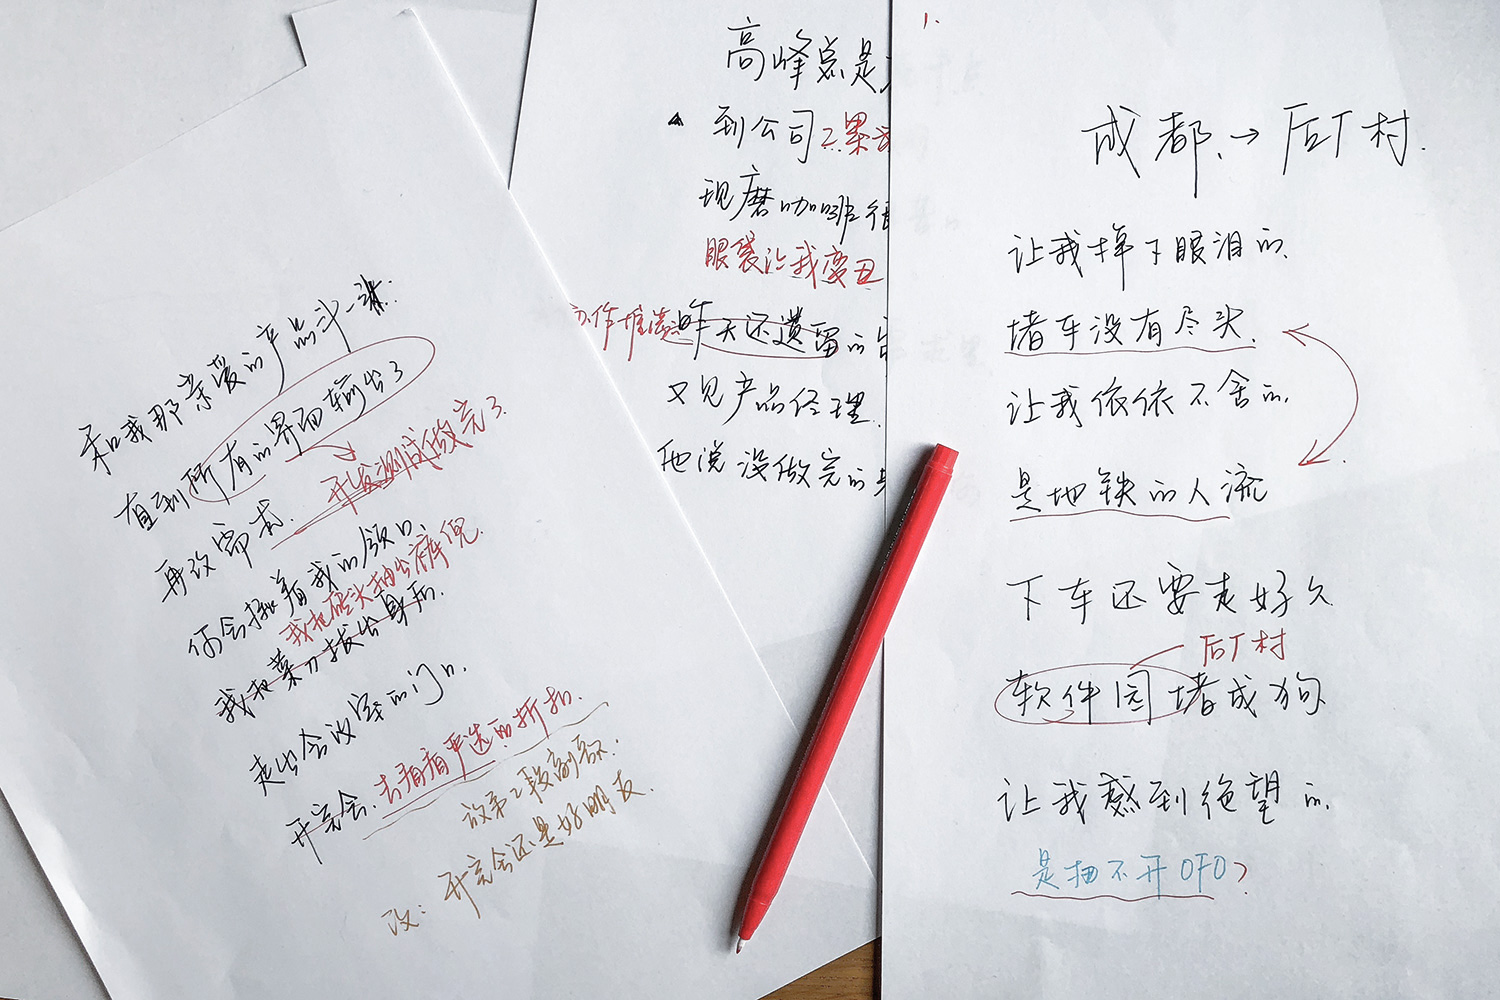 和我那亲爱的产品斗一裃
直到所有的界面输出了
开发测试做完了.
再改需求.
你会揪着我的领口.
我把砖头抽出裤兜.
我把菜刀拔出身后.
走出会议室的门口.
开完会.去看看严选的折扣.
放第2段副歌.
改:开完会还是好朋友.
高峰总是
到公司已累
现磨咖啡很
眼袋让我变丑
工作堆满 昨天还遗留的
又见产品经理.
他说没做完的
1.
成都.→后厂村.
让我掉下眼泪的.
堵车没有尽头.
让我依依不舍的.
是地铁的人流
下车还要走好久
后厂村
软件园堵成狗
让我感到绝望的.
是抽不开OFO?